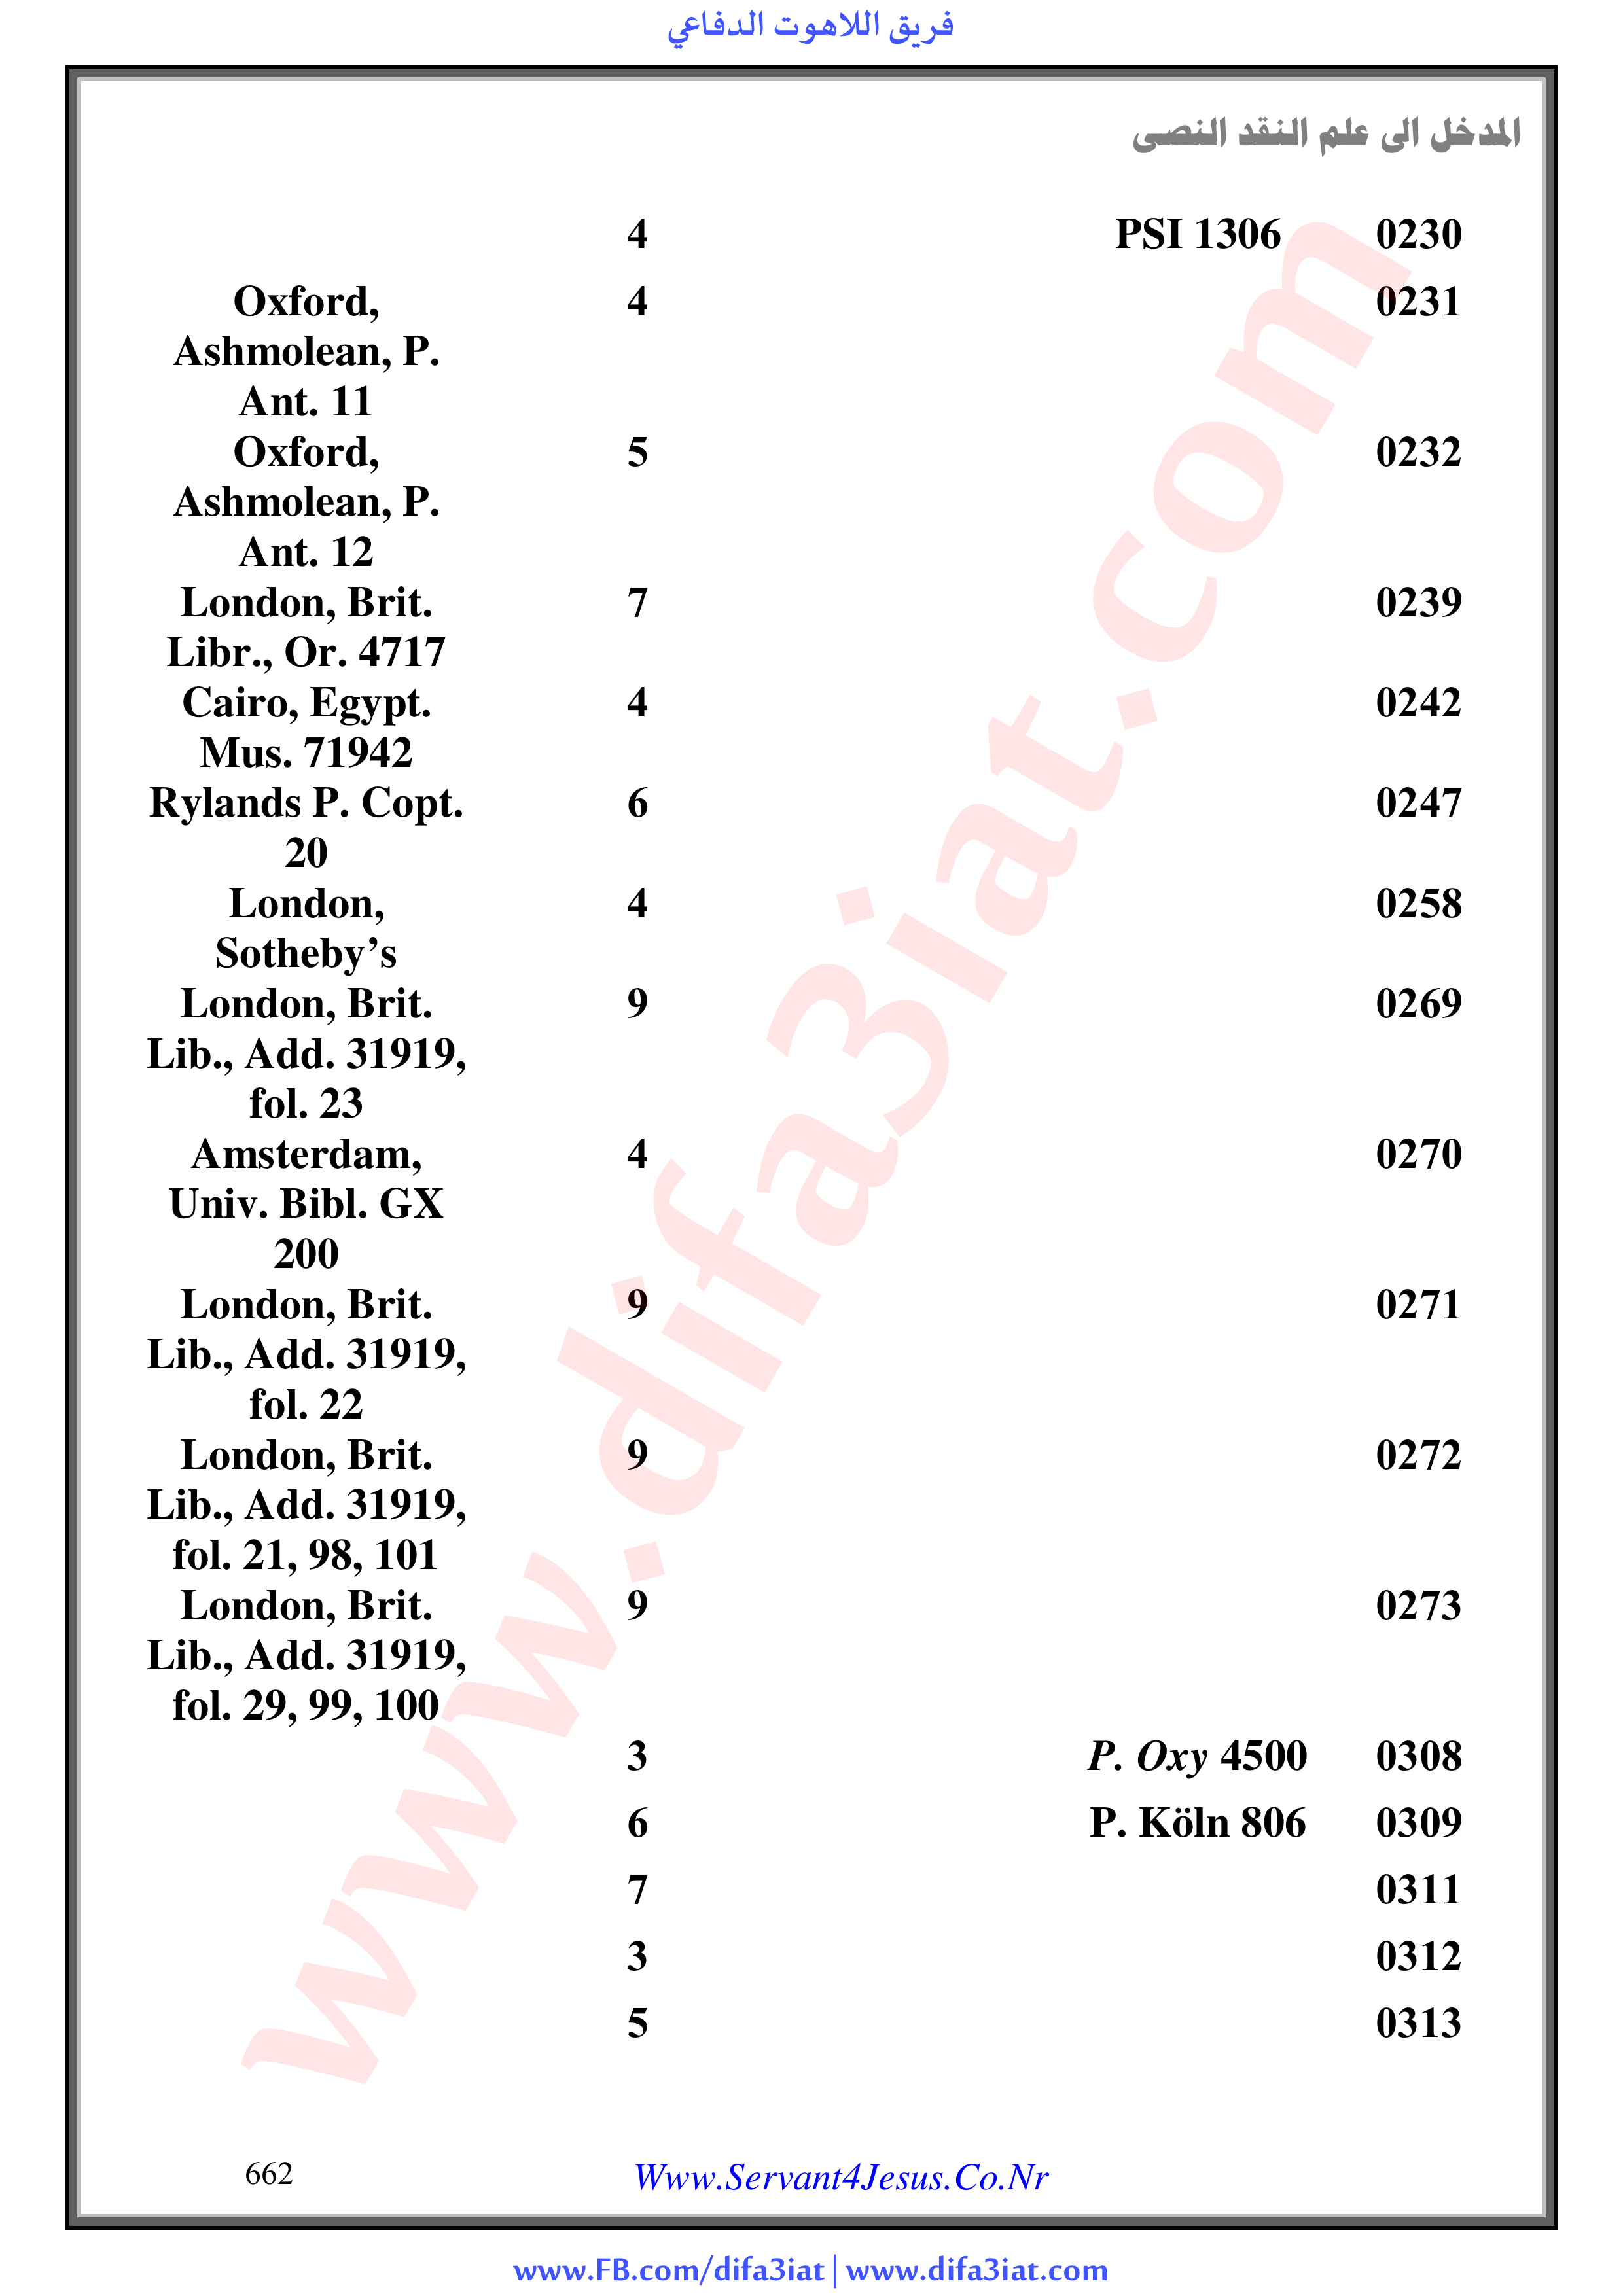 فريق اللاهوت الدفاعي
المدخل الى علم النقد النصى
0230 PSI 1306 4
0231 4 Oxford,
Ashmolean, P.
Ant. 11
0232 5 Oxford,
Ashmolean, P.
Ant. 12
0239 7 London, Brit.
Libr., Or. 4717
0242 4 Cairo, Egypt.
Mus. 71942
0247 6 Rylands P. Copt.
20
0258 4 London,
Sotheby’s
0269 9 London, Brit.
Lib., Add. 31919,
fol. 23
0270 4 Amsterdam,
Univ. Bibl. GX
200
0271 9 London, Brit.
Lib., Add. 31919,
fol. 22
0272 9 London, Brit.
Lib., Add. 31919,
fol. 21, 98, 101
0273 9 London, Brit.
Lib., Add. 31919,
fol. 29, 99, 100
0308 P. Oxy 4500 3
0309 P. Köln 806 6
0311 7
0312 3
0313 5
www.difa3iat.com
662 Www.Servant4Jesus.Co.Nr
www.FB.com/difa3iat | www.difa3iat.com